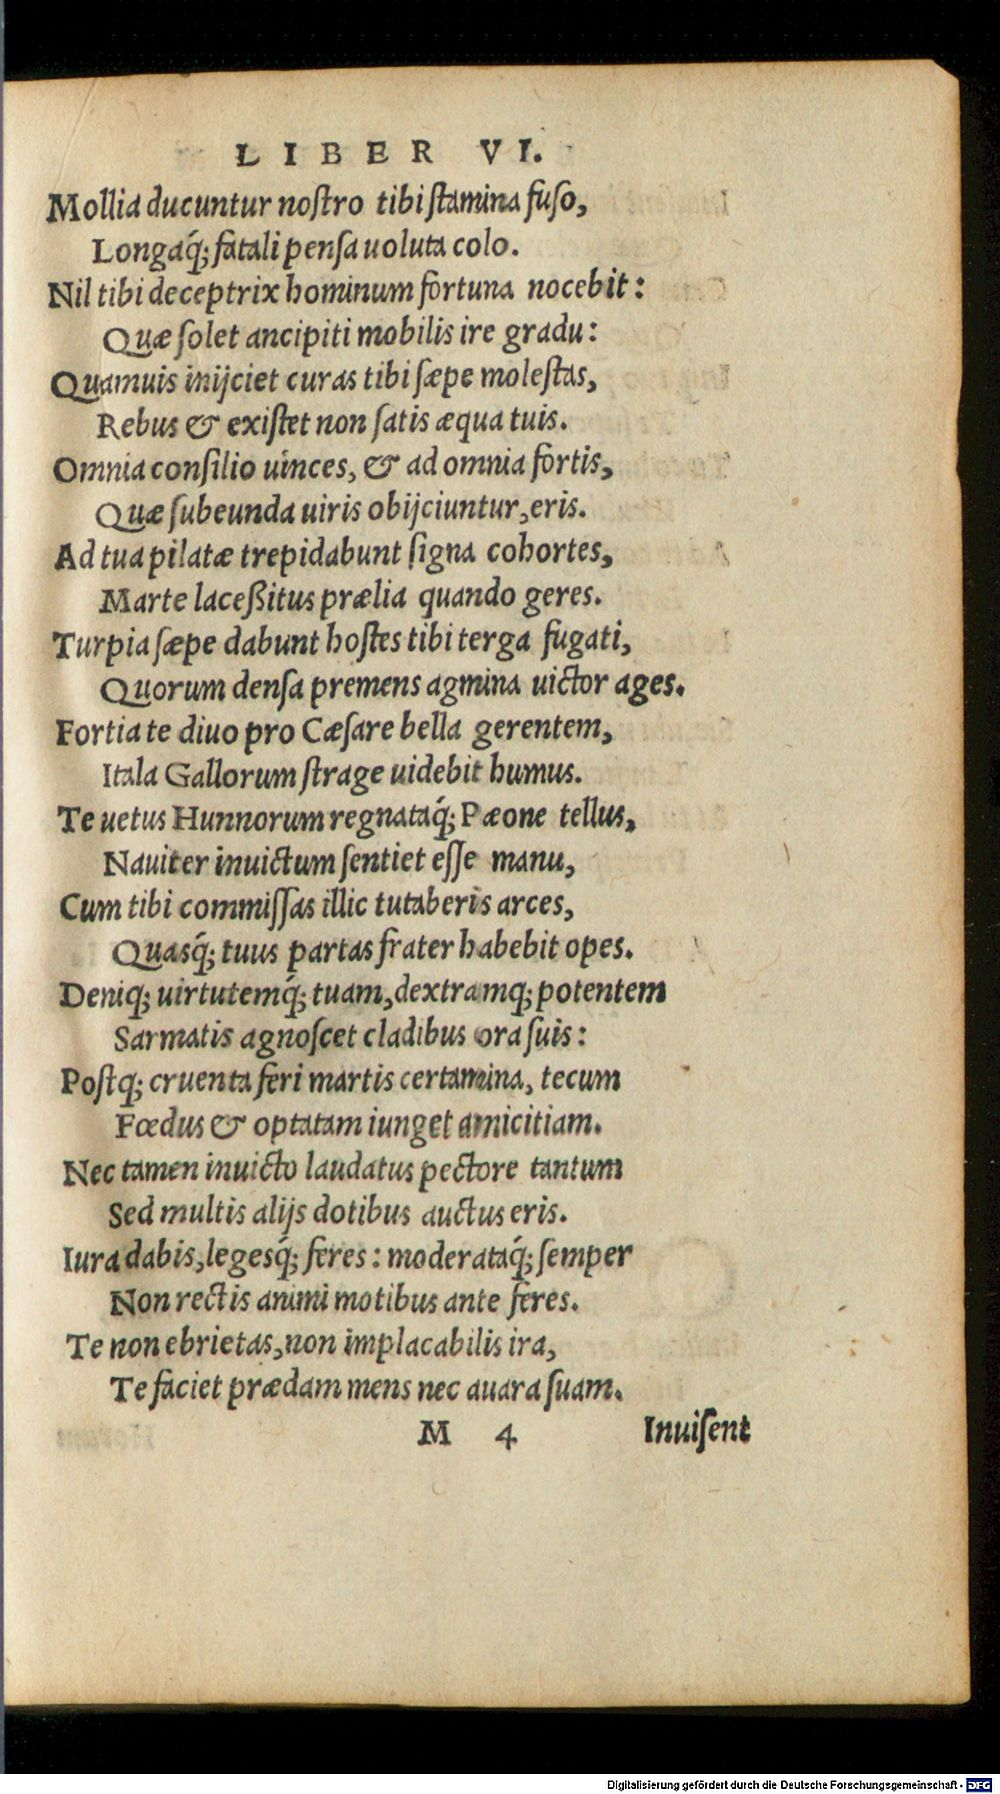 LIBER VI.
Mollia ducuntur nostro tibi stamina fuso,
Longaq́; fatali pensa uoluta colo.
Nil tibi deceptrix hominum fortuna nocebit:
Quæ solet ancipiti mobilis ire gradu:
Quamuis inijciet curas tibi sæpe molestas,
Rebus & existet non satis æqua tuis.
Omnia consilio uinces, & ad omnia fortis,
Quæ subeunda uiris obijciuntur, eris.
Ad tua pilatæ trepidabunt signa cohortes,
Marte laceßitus prælia quando geres.
Turpia sæpe dabunt hostes tibi terga fugati,
Quorum densa premens agmina uictor ages.
Fortia te diuo pro Cæsare bella gerentem,
Itala Gallorum strage uidebit humus.
Te uetus Hunnorum regnataq́; Pæone tellus,
Nauiter inuictum sentiet esse manu,
Cum tibi commissas illic tutaberis arces,
Quasq́; tuus partas frater habebit opes.
Deniq; uirtutemq́; tuam, dextramq; potentem
Sarmatis agnoscet cladibus ora suis:
Postq; cruenta feri martis certamina, tecum
Fœdus & optatam iunget amicitiam.
Nec tamen inuicto laudatus pectore tantum
Sed multis alijs dotibus auctus eris.
Iura dabis, legesq́; feres: moderataq́; semper
Non rectis animi motibus ante feres.
Te non ebrietas, non implacabilis ira,
Te faciet prædam mens nec auara suam.
M 4 Inuisent
Digitalisierung gefördert durch die Deutsche Forschungsgemeinschaft - DFG